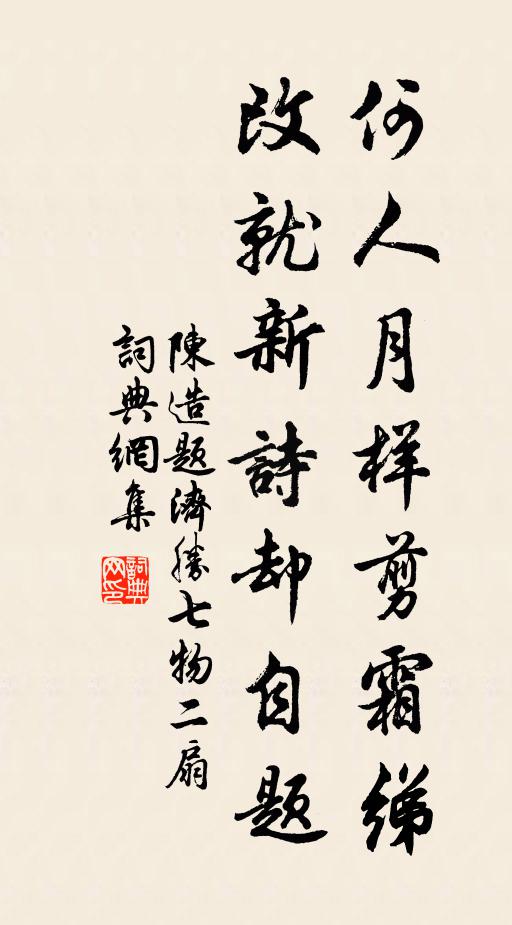 何人月样剪霜绨
改就新詩却自題
陳造題濟勝七物二扇
詞典網集
詞典网印